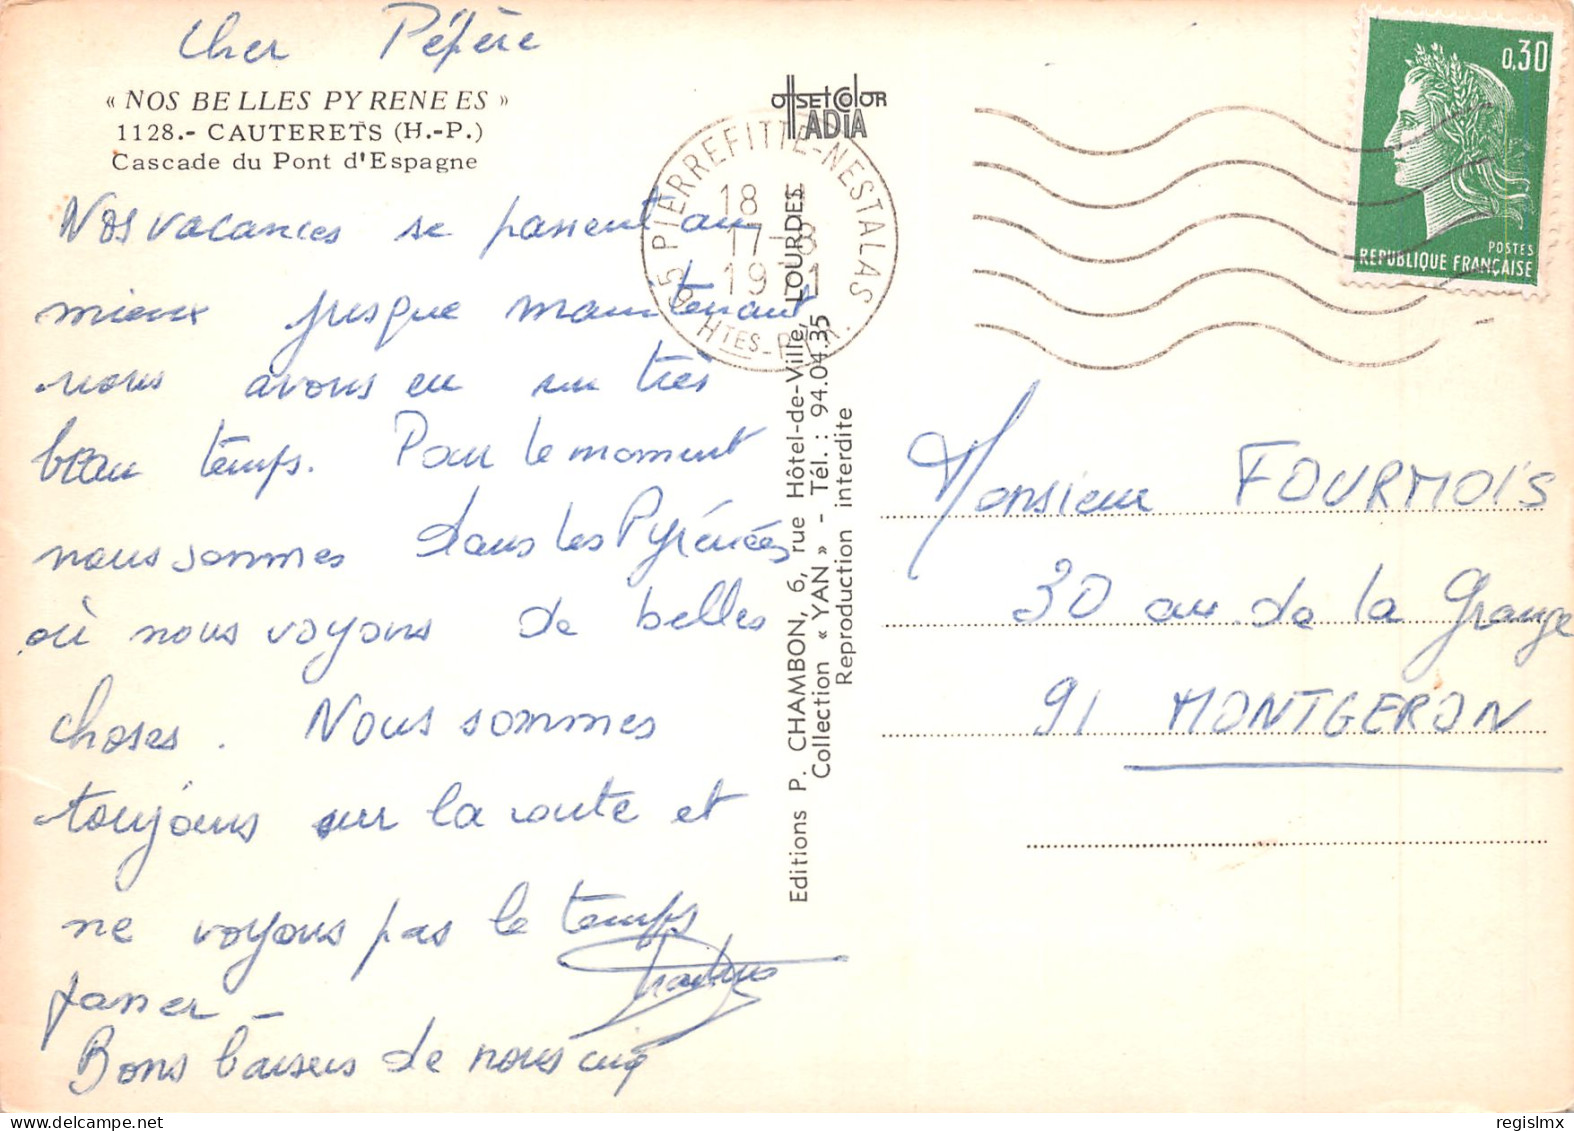 Cher Pépère
« NOS BELLES PYRENEES »
1128.- CAUTERETS (H.-P.)
Cascade du Pont d'Espagne
Nos vacances se passent au
mieux jusque maintenant
nous avons eu un très
beau temps. Pour le moment
nous sommes dans les Pyrénées
où nous voyons de belles
choses. Nous sommes
toujours sur la route et
ne voyons pas le temps
passer -
Bons baisers de nous cinq
OFFSET COLOR
IADIA
65 PIERREFITTE-NESTALAS
18 H
17-8
1971
HTES-PYR.
Editions P. CHAMBON, 6, rue Hôtel-de-Ville, LOURDES
Collection « YAN » - Tél. : 94.04.35
Reproduction interdite
0,30
POSTES
REPUBLIQUE FRANÇAISE
Monsieur FOURMOIS
30 av. de la Grange
91 MONTGERON
regislmx